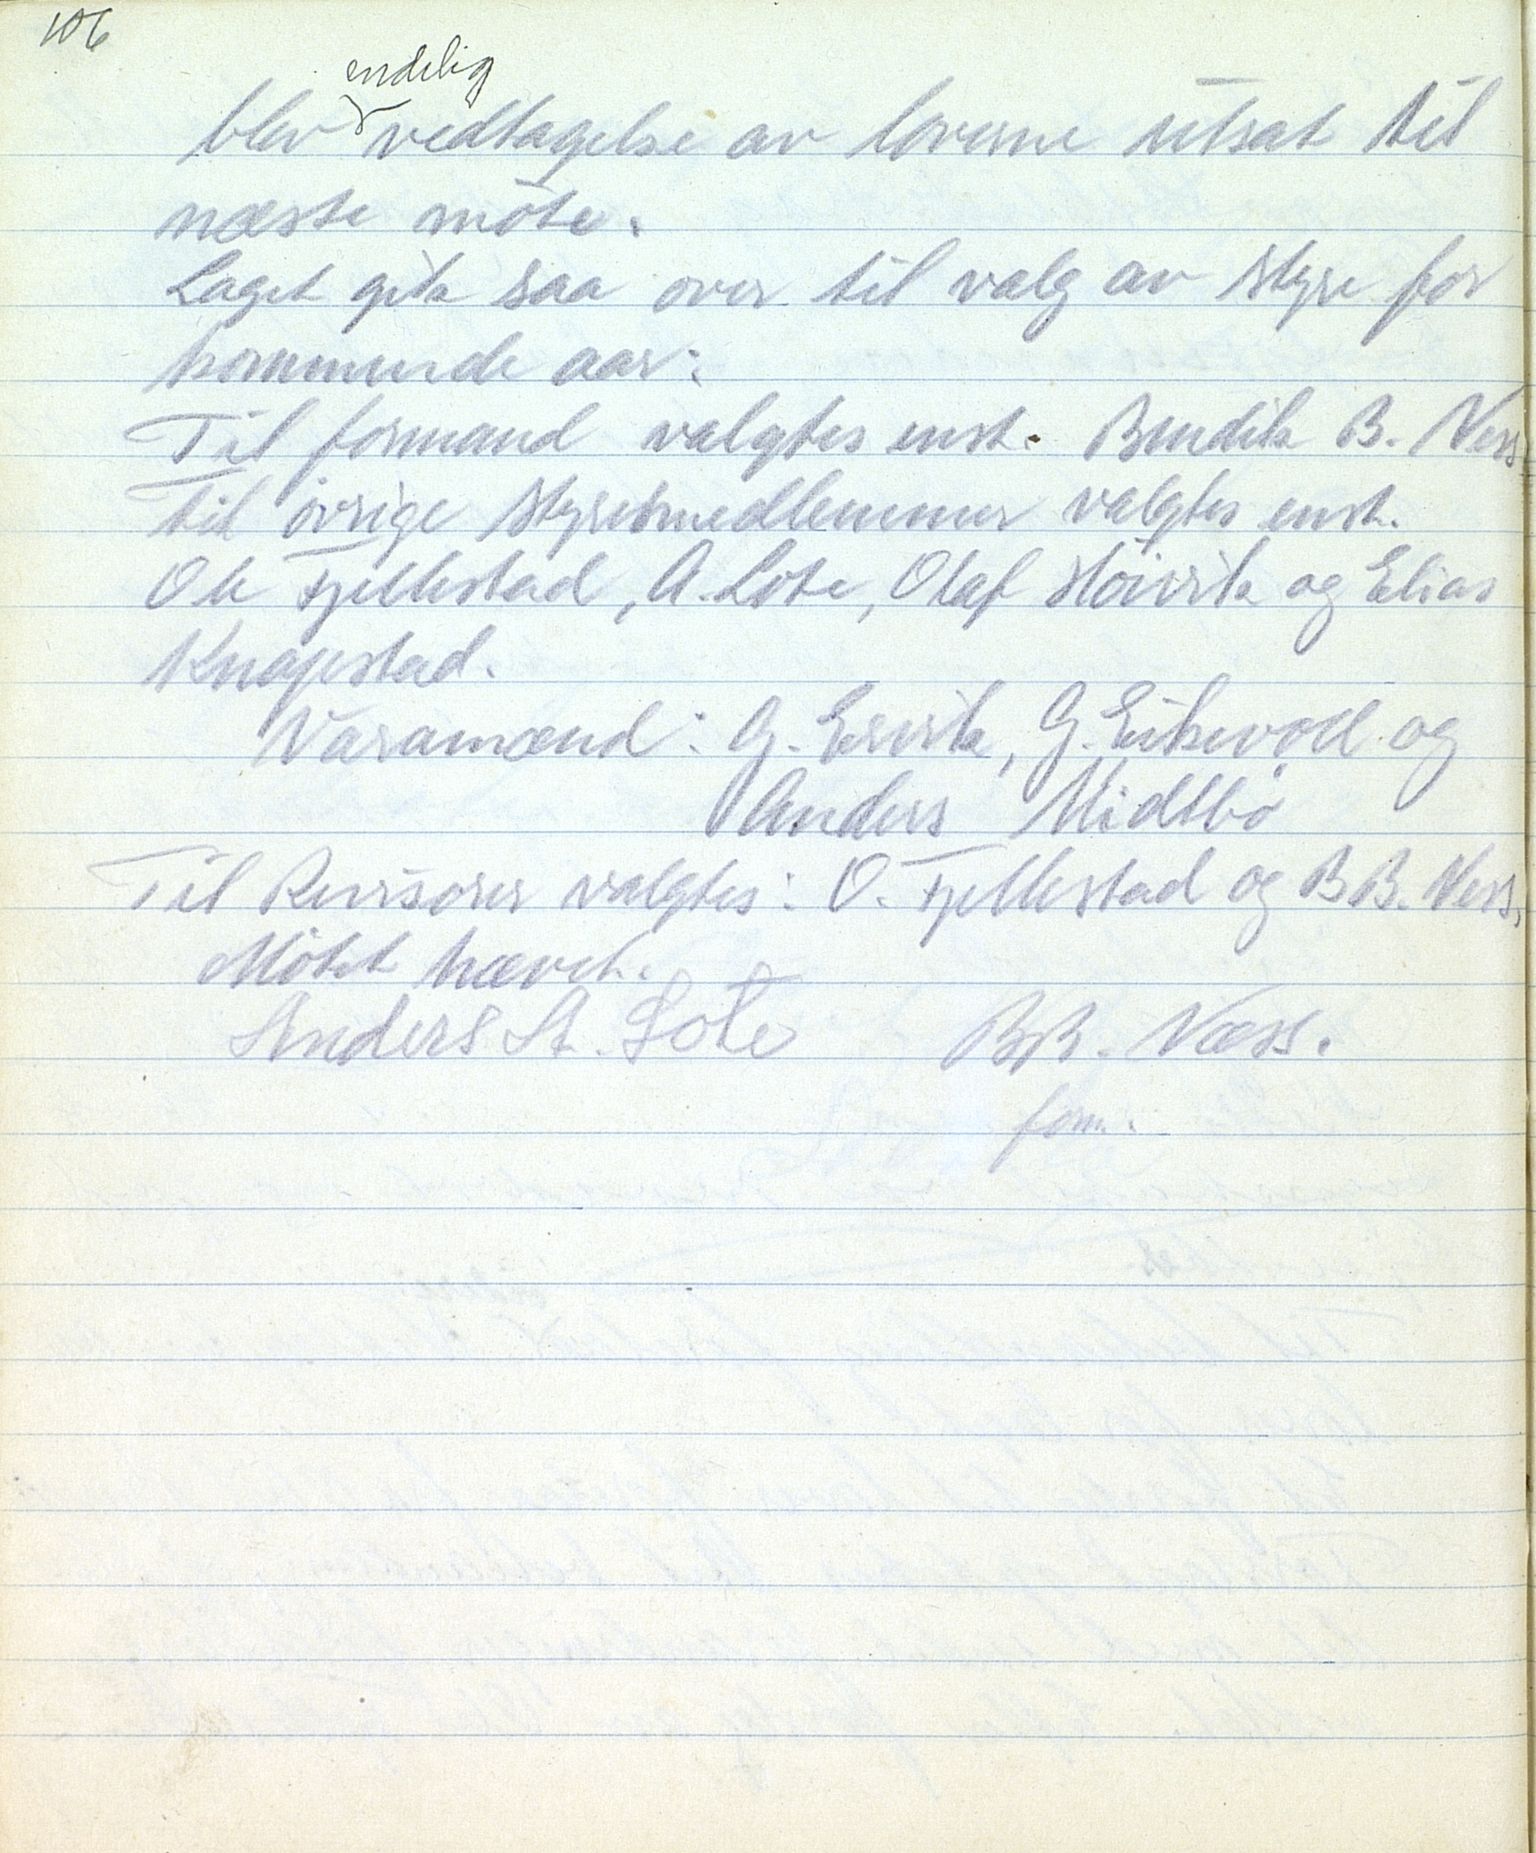 106
endelig
blev vedtagelse av loverne utsat til
næste möte.
Laget gik saa over til valg av styre for
kommende aar:
Til formand valgtes enst. Bendik B. Ness.
Til övrige styresmedlemmer valgtes enst.
Ole Fjellestad, A. Lote, Olaf Höivik og Elias
Knapstad.
Varamænd: G. Ervik, G. Eikevoll og
Anders Midtbö
Til Revisorer valgtes: O. Fjellestad og B.B. Ness.
Mötet hævet.
Anders A. Lote B.B. Næss.
form.